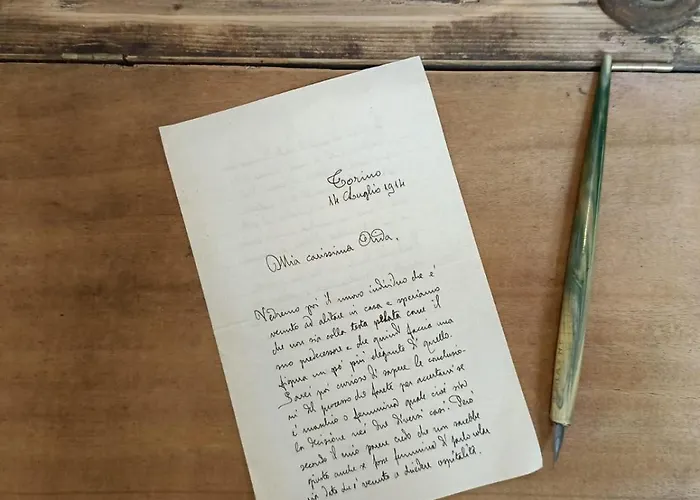 Torino
14 Luglio 1914
Mia carissima
Vedremo poi il nuovo individuo che e'
venuto ad abitare in casa e speriamo
che non sia colla testa pelata come il
suo predecessore e che quindi faccia una
figura un po' più elegante di quello.
Sarei poi curioso di sapere le conclusio-
ni del processo che farete per accertarvi se
e' maschio o femmina quale sia
la decisione nei due diversi casi. Però
secondo il mio parere credo che non sarebbe
giusto anche se fosse femmina di
venuto a chiedere ospitalità.